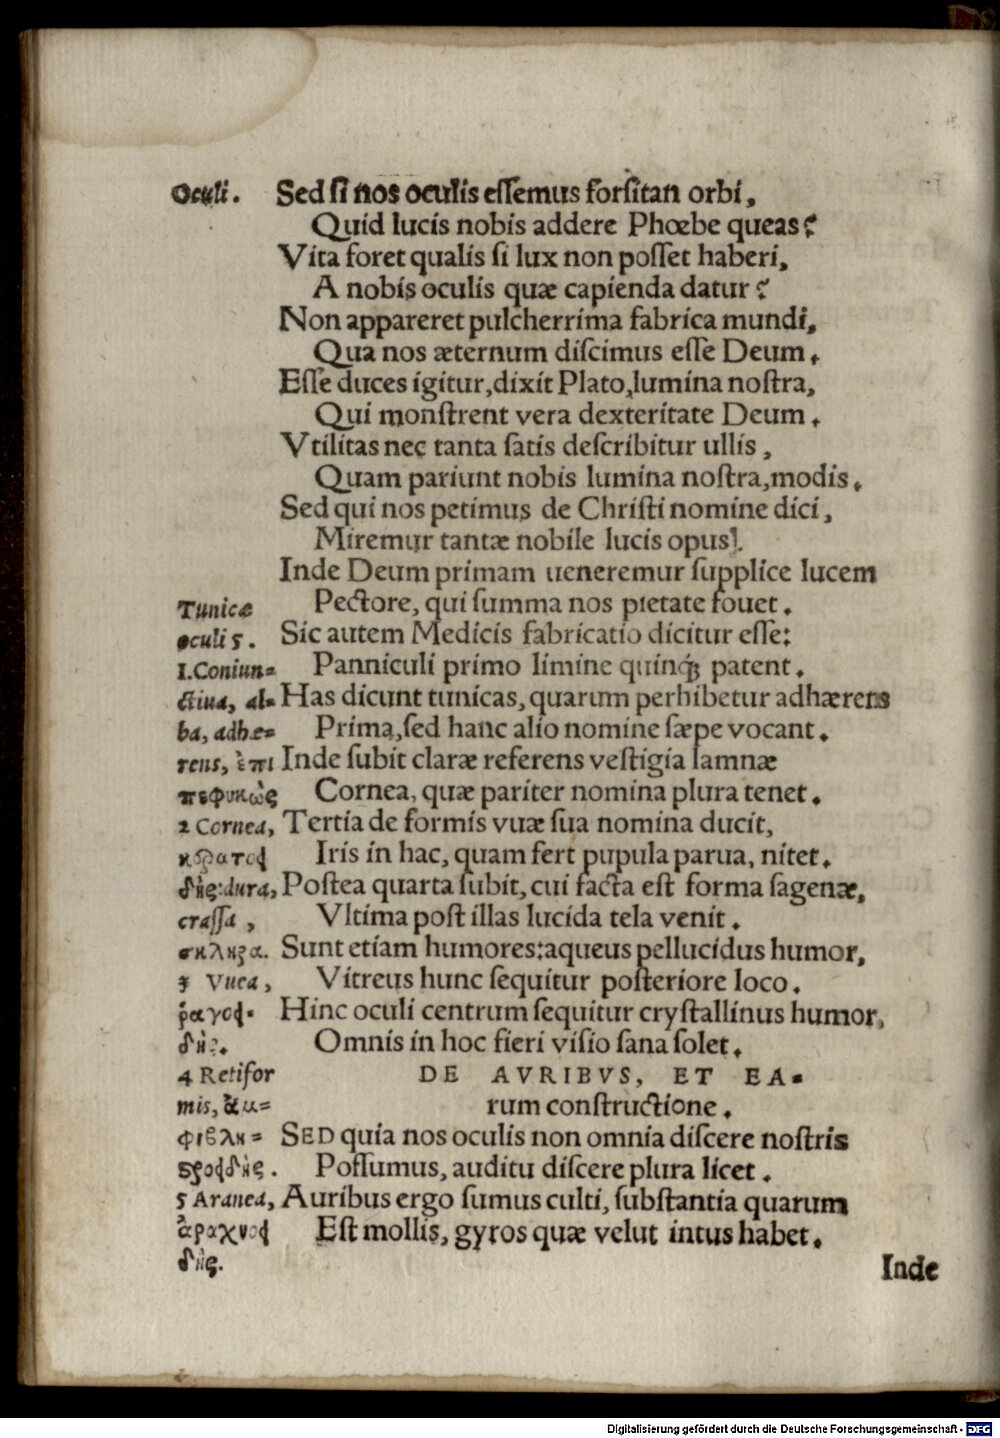 Oculi. Sed si nos oculis essemus forsitan orbi,
Quid lucis nobis addere Phœbe queas?
Vita foret qualis si lux non posset haberi,
A nobis oculis quæ capienda datur?
Non appareret pulcherrima fabrica mundi,
Qua nos æternum discimus esse Deum.
Esse duces igitur, dixit Plato, lumina nostra,
Qui monstrent vera dexteritate Deum.
Vtilitas nec tanta satis describitur ullis,
Quam pariunt nobis lumina nostra, modis.
Sed qui nos petimus de Christi nomine dici,
Miremur tantæ nobile lucis opus.
Inde Deum primam ueneremur supplice lucem
Tunicæ Pectore, qui summa nos pietate fouet.
oculi 5. Sic autem Medicis fabricatio dicitur esse:
1. Coniun= Panniculi primo limine quinqꝫ patent.
ctiua, al= Has dicunt tunicas, quarum perhibetur adhærens
ba, adhæ= Prima, sed hanc alio nomine sæpe vocant.
rens, ἐπι Inde subit claræ referens vestigia lamnæ
πεφυκὼς Cornea, quæ pariter nomina plura tenet.
2 Cornea, Tertia de formis vuæ sua nomina ducit,
κερατοϕ Iris in hac, quam fert pupula parua, nitet.
δὴς: dura, Postea quarta subit, cui facta est forma sagenæ,
crassa, Vltima post illas lucida tela venit.
σκληρα. Sunt etiam humores: aqueus pellucidus humor,
3 Vuea, Vitreus hunc sequitur posteriore loco.
ῥαγοϕ= Hinc oculi centrum sequitur crystallinus humor,
δὴς. Omnis in hoc fieri visio sana solet.
4 Retifor DE AVRIBVS, ET EA=
mis, ἀμ= rum constructione.
φιβλη= SED quia nos oculis non omnia discere nostris
ςροϕδὴς. Possumus, auditu discere plura licet.
5 Aranea, Auribus ergo sumus culti, substantia quarum
ἀραχνοϕ Est mollis, gyros quæ velut intus habet.
δὴς.
Inde
Digitalisierung gefördert durch die Deutsche Forschungsgemeinschaft - DFG